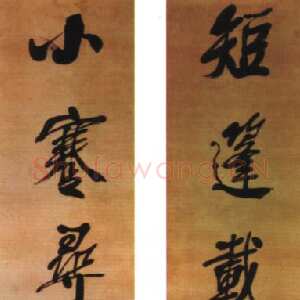 短篷載
小蹇尋
Shufawang.CN